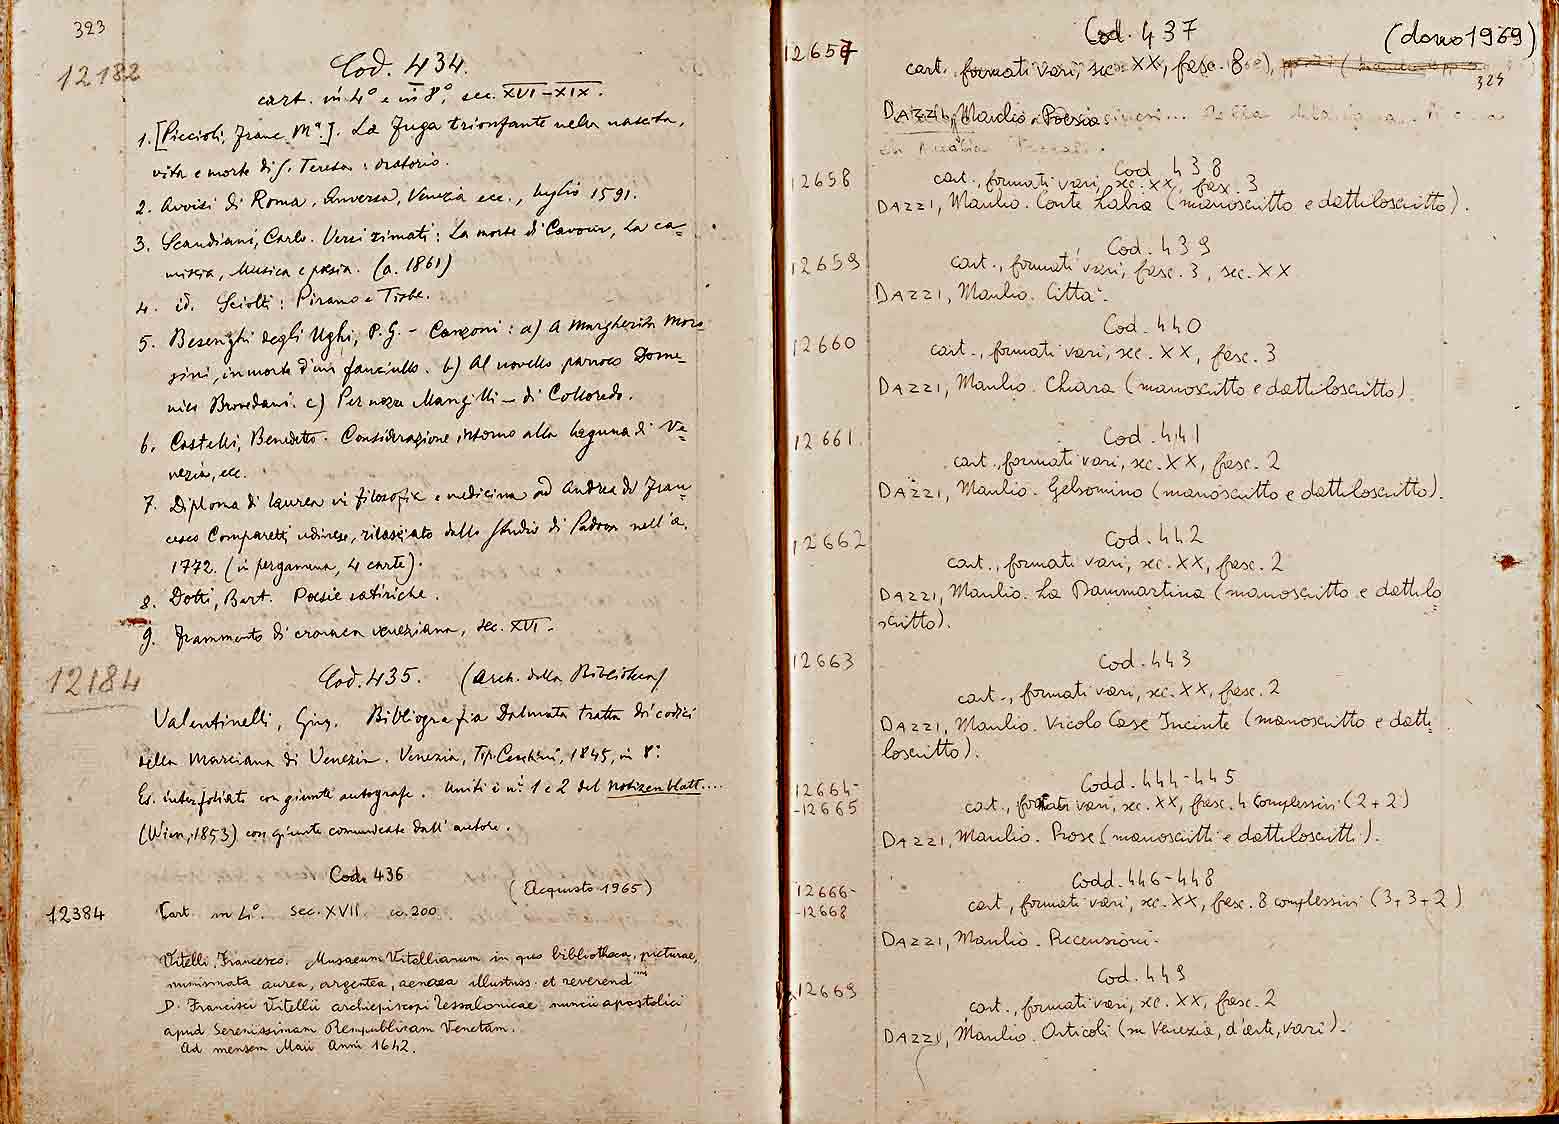 323
12182
Cod. 434.
cart. in 4° e in 8°, sec. XVI-XIX.
1. [Piccioli, Franc. Mª.]. La Fuga trionfante nella nascita,
vita e morte di S. Teresa: oratorio.
2. Avvisi di Roma, Anversa, Venezia ecc., luglio 1591.
3. Scandiani, Carlo. Versi rimati: La morte di Cavour, La ca=
mixia, Musica e poesia. (a. 1861)
4. id. Sciolti: Piramo e Tisbe.
5. Besenghi degli Ughi, P. G. - Canzoni: a) A Margherita Moro
sini, in morte d'un fanciullo. b) Al novello parroco Dome=
nico Brovedani. c) Per nozze Mangilli - di Colloredo.
6. Castelli, Benedetto. Considerazione intorno alla laguna di Ve=
nezia, ecc.
7. Diploma di laurea in filosofia e medicina ad Andrea di Fran=
cesco Comparetti udinese, rilasciato dallo Studio di Padova nell'a.
1772. (in pergamena, 4 carte).
8. Dotti, Bart. Poesie satiriche.
9. Frammento di cronaca veneziana, sec. XVI.
12184
Cod. 435. (Arch. della Biblioteca)
Valentinelli, Gius. Bibliografia Dalmata tratta da' codici
della Marciana di Venezia. Venezia, Tip. Cecchini, 1845, in 8°.
Es. interfoliato con giunte autografe. Uniti i nⁱ 1 e 2 del Notizenblatt....
(Wien, 1853) con giunte comunicate dall'autore.
Cod. 436
(Acquisto 1965)
12384
Cart. in 4°. sec. XVII. cc. 200
Vitelli, Francesco. Musaeum Vitellianum in quo bibliotheca, picturae,
numismata aurea, argentea, aenea illustriss. et reverend.mi
D. Francisci Vitellii archiepiscopi Tessalonicae nuncii apostolici
apud Serenissimam Rempublicam Venetam.
Ad mensem Maii Anni 1642.
Cod. 437
(dono 1969)
12657
cart. formati vari, sec. XX, fasc. 8
325
DAZZI, Manlio. Poesia
Cod. 438
12658
cart., formati vari, sec. XX, fasc. 3
DAZZI, Manlio. Conte Labia (manoscritto e dattiloscritto).
Cod. 439
12659
cart., formati vari, fasc. 3, sec. XX
DAZZI, Manlio. Città.
Cod. 440
12660
cart., formati vari, sec. XX, fasc. 3
DAZZI, Manlio. Chiara (manoscritto e dattiloscritto).
Cod. 441
12661
cart., formati vari, sec. XX, fasc. 2
DAZZI, Manlio. Gelsomino (manoscritto e dattiloscritto).
Cod. 442
12662
cart., formati vari, sec. XX, fasc. 2
DAZZI, Manlio. La Dammartina (manoscritto e dattilo=
scritto).
Cod. 443
12663
cart., formati vari, sec. XX, fasc. 2
DAZZI, Manlio. Vicolo Case Incinte (manoscritto e datti=
loscritto).
Codd. 444-445
12664-
-12665
cart., formati vari, sec. XX, fasc. 4 complessivi (2+2)
DAZZI, Manlio. Prose (manoscritti e dattiloscritti).
Codd. 446-448
12666-
-12668
cart., formati vari, sec. XX, fasc. 8 complessivi (3+3+2)
DAZZI, Manlio. Recensioni.
Cod. 449
12669
cart., formati vari, sec. XX, fasc. 2
DAZZI, Manlio. Articoli (su Venezia, d'arte, vari).